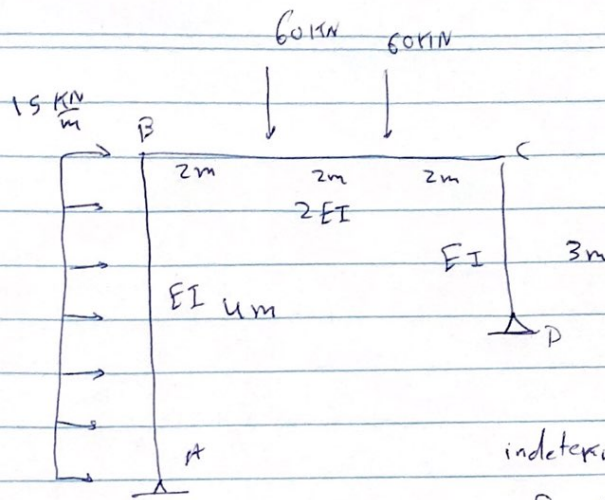 60KN 60KN
15 KN/m
B C
2m 2m 2m
2EI
EI 3m
EI 4m
D
A